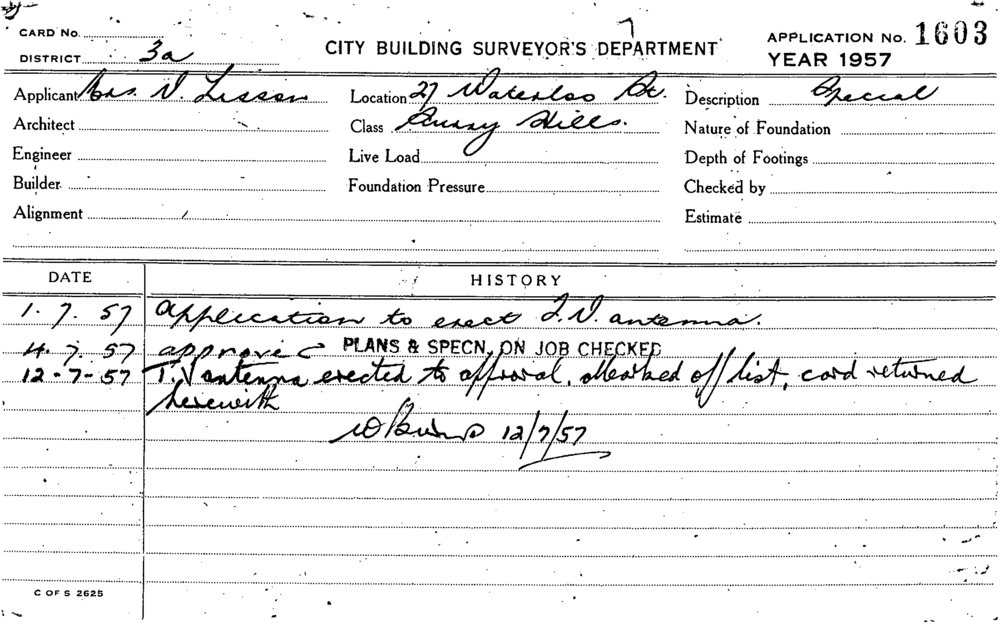 CARD No.
CITY BUILDING SURVEYOR'S DEPARTMENT
APPLICATION No. 1603
DISTRICT 3a
YEAR 1957
Applicant Mrs. V. Lisson Location 27 Waterloo St. Description Special
Architect Class Surry Hills. Nature of Foundation
Engineer Live Load Depth of Footings
Builder Foundation Pressure Checked by
Alignment Estimate
DATE HISTORY
1. 7. 57 Application to erect T.V. antenna.
4. 7. 57 approved PLANS & SPECN. ON JOB CHECKED
12-7-57 T.V antenna erected to approval. Marked off list, card returned
herewith
12/7/57
C OF S 2625